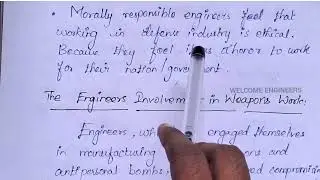 • Morally responsible engineers feel that
working in defense industry is ethical.
Because they feel a honor to work
for their nation/government.
WELCOME ENGINEERS
The Engineers Involvement in Weapons Work:
Engineers, engaged themselves
in manufacturing
antipersonal bombs,